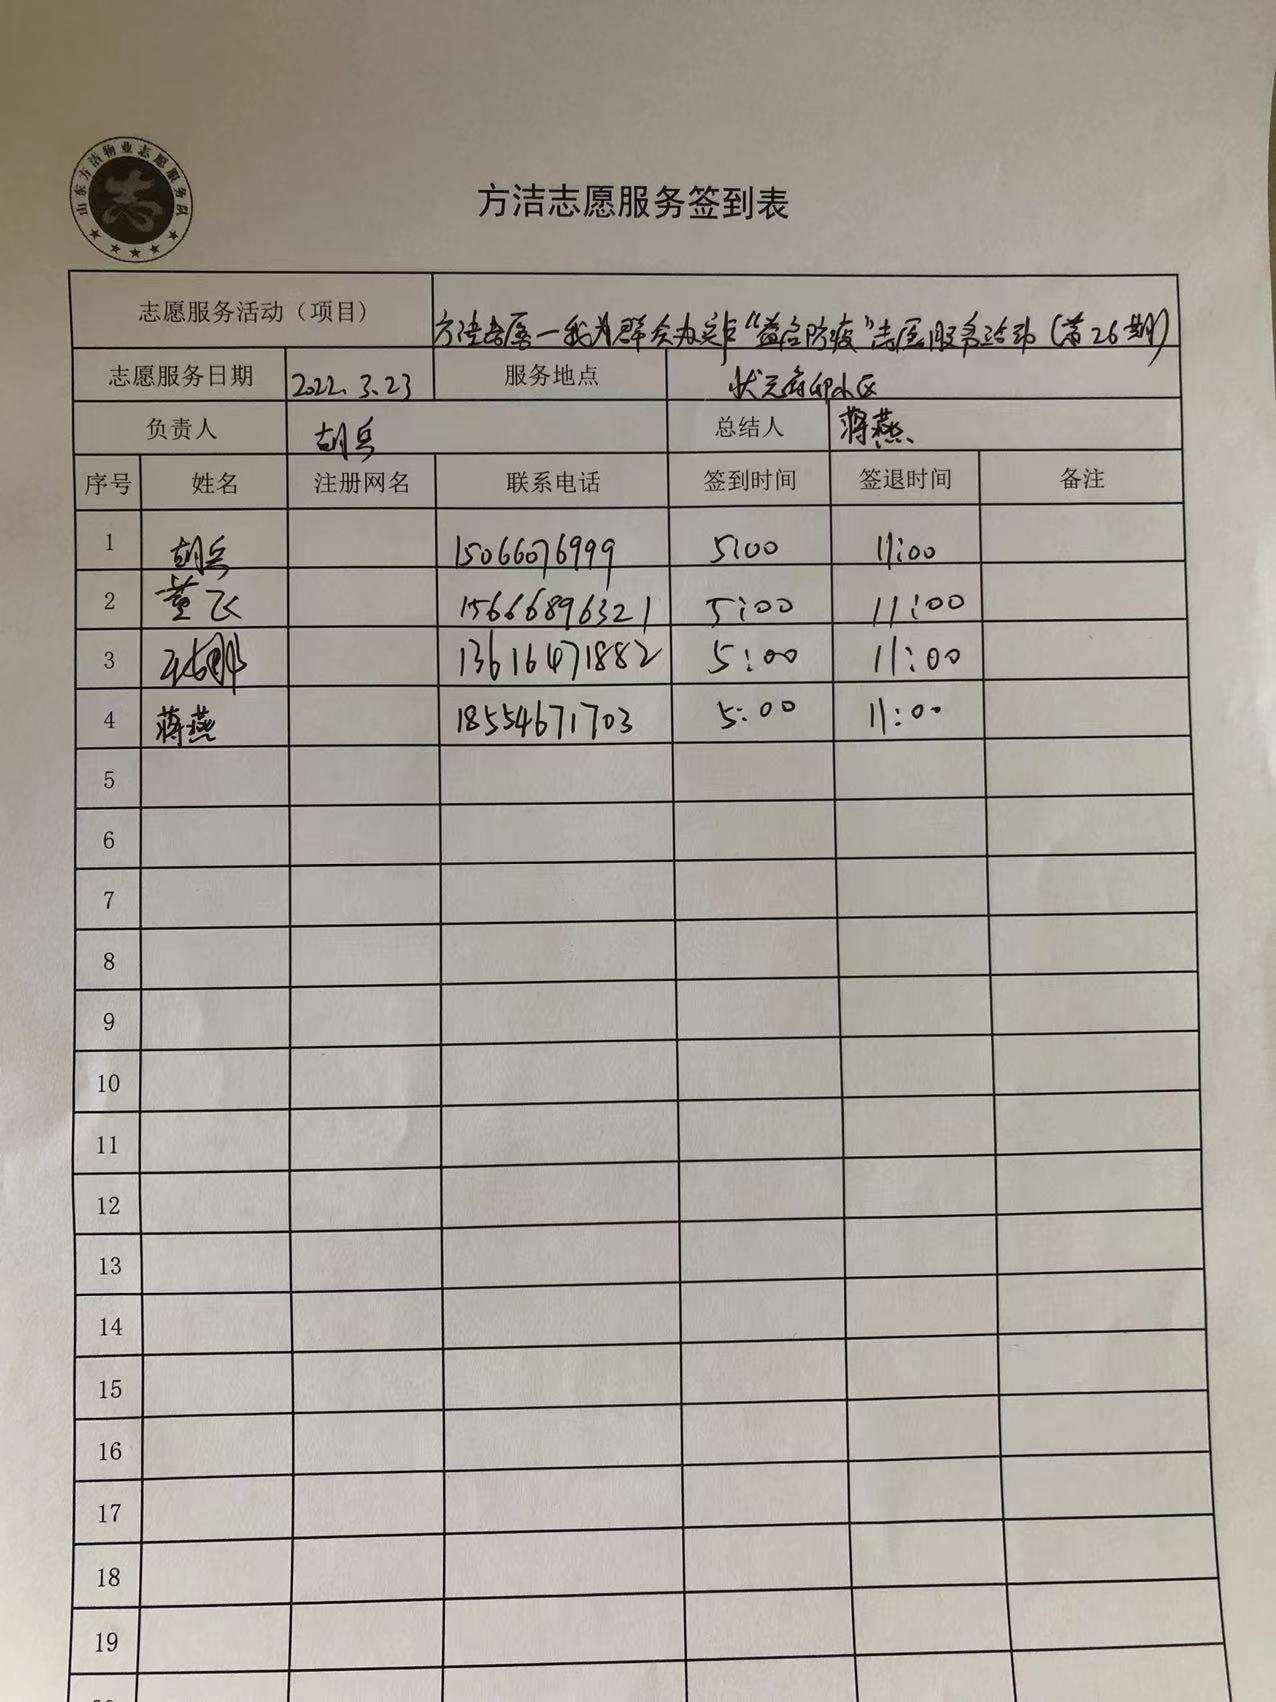 山东方洁物业志愿服务队
志
方洁志愿服务签到表
志愿服务活动（项目） 方洁志愿—我为群众办实事“益启防疫”志愿服务活动（第26期）
志愿服务日期 2022.3.23 服务地点 状元府邸小区
负责人 胡兵 总结人 蒋燕
序号 姓名 注册网名 联系电话 签到时间 签退时间 备注
1 胡兵 15066076999 5:00 11:00
2 董飞 15666896321 5:00 11:00
3 13616471882 5:00 11:00
4 蒋燕 18554671703 5:00 11:00
5
6
7
8
9
10
11
12
13
14
15
16
17
18
19